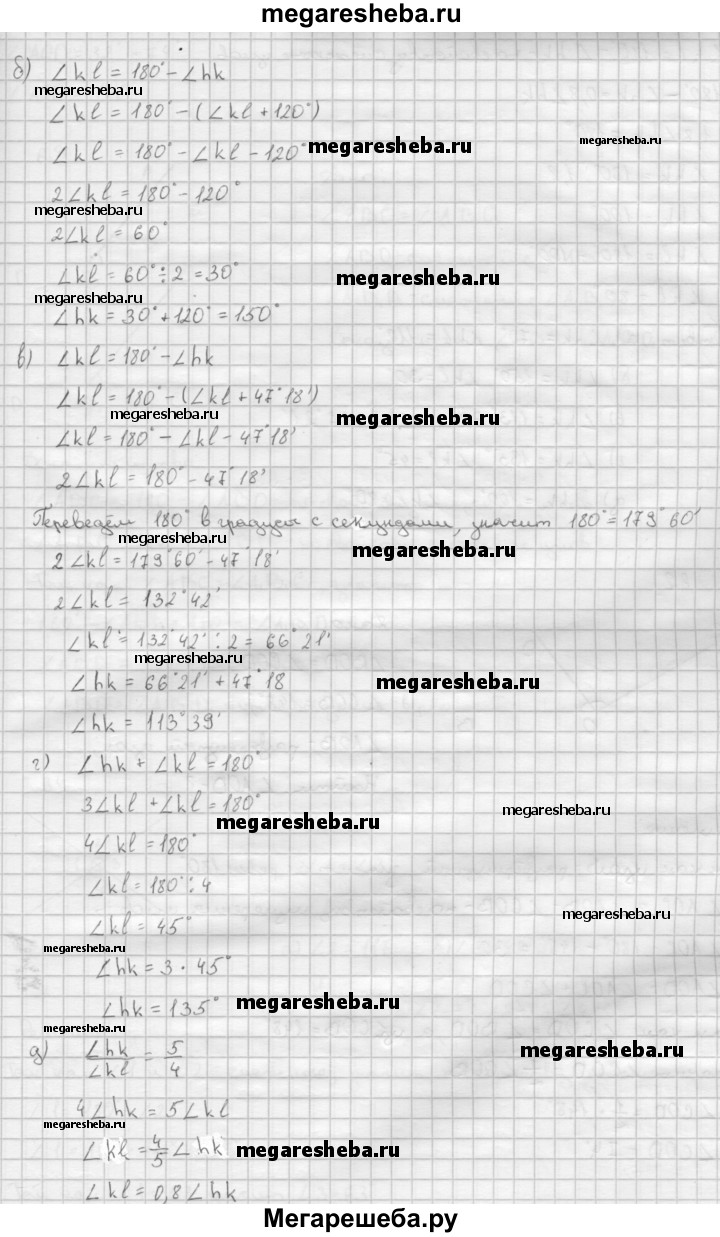 megaresheba.ru
б) ∠kl = 180° - ∠hk
megaresheba.ru
∠kl = 180° - (∠kl + 120°)
megaresheba.ru
∠kl = 180° - ∠kl - 120°
megaresheba.ru
2∠kl = 180° - 120°
megaresheba.ru
2∠kl = 60°
∠kl = 60° : 2 = 30°
megaresheba.ru
megaresheba.ru
∠hk = 30° + 120° = 150°
в) ∠kl = 180° - ∠hk
∠kl = 180° - (∠kl + 47°18')
megaresheba.ru
megaresheba.ru
∠kl = 180° - ∠kl - 47°18'
2∠kl = 180° - 47°18'
Переведём 180° в градусы с секундами, значит 180° = 179°60'
megaresheba.ru
megaresheba.ru
2∠kl = 179°60' - 47°18'
2∠kl = 132°42'
∠kl = 132°42' : 2 = 66°21'
megaresheba.ru
∠hk = 66°21' + 47°18
megaresheba.ru
∠hk = 113°39'
г) ∠hk + ∠kl = 180°
3∠kl + ∠kl = 180°
megaresheba.ru
megaresheba.ru
4∠kl = 180°
∠kl = 180° : 4
∠kl = 45°
megaresheba.ru
megaresheba.ru
∠hk = 3 · 45°
∠hk = 135°
megaresheba.ru
megaresheba.ru
д) ∠hk/∠kl = 5/4
megaresheba.ru
4∠hk = 5∠kl
megaresheba.ru
∠kl = 4/5 ∠hk
megaresheba.ru
∠kl = 0,8∠hk
Мегарешеба.ру